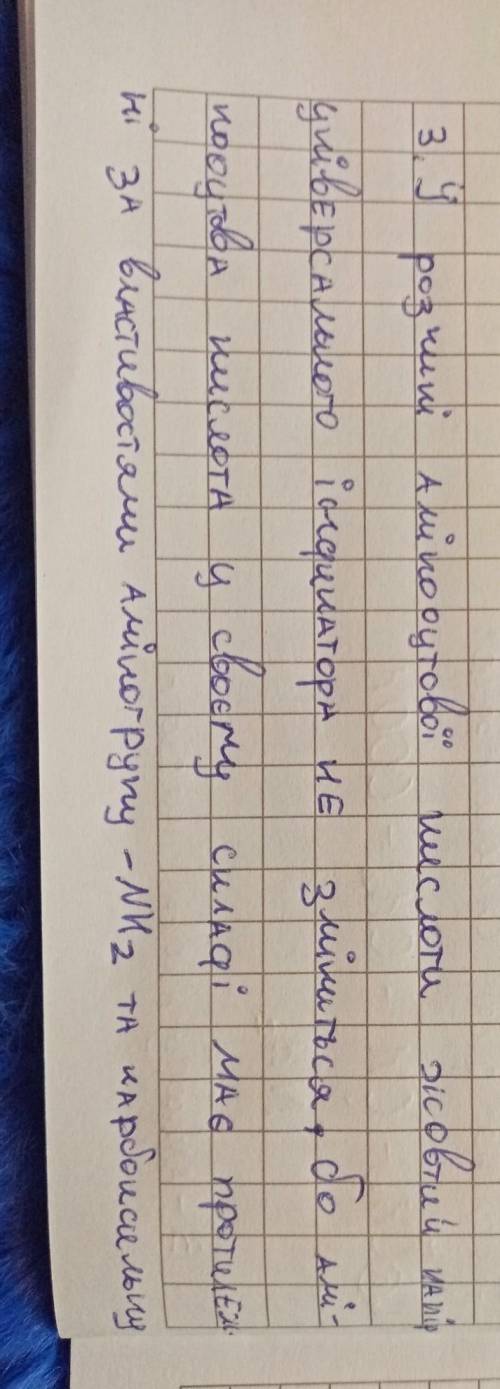 3. У розчині амінооутової кислоти жовтий папір
універсального індикатора не зміниться, бо амі-
нооутова кислота у своєму складі має протилеж-
ні за властивостями аміногрупу -NH2 та карбоксильну